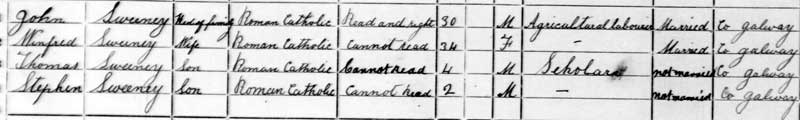 John Sweeney Head of family Roman Catholic Read and right 30 M Agricultard labourer Married Co galway
Winfred Sweeney Wife Roman Catholic Cannot read 34 F — Married Co galway
Thomas Sweeney Son Roman Catholic Cannot read 4 M Scholar not married Co galway
Stephen Sweeney Son Roman Catholic Cannot read 2 M — not married Co galway